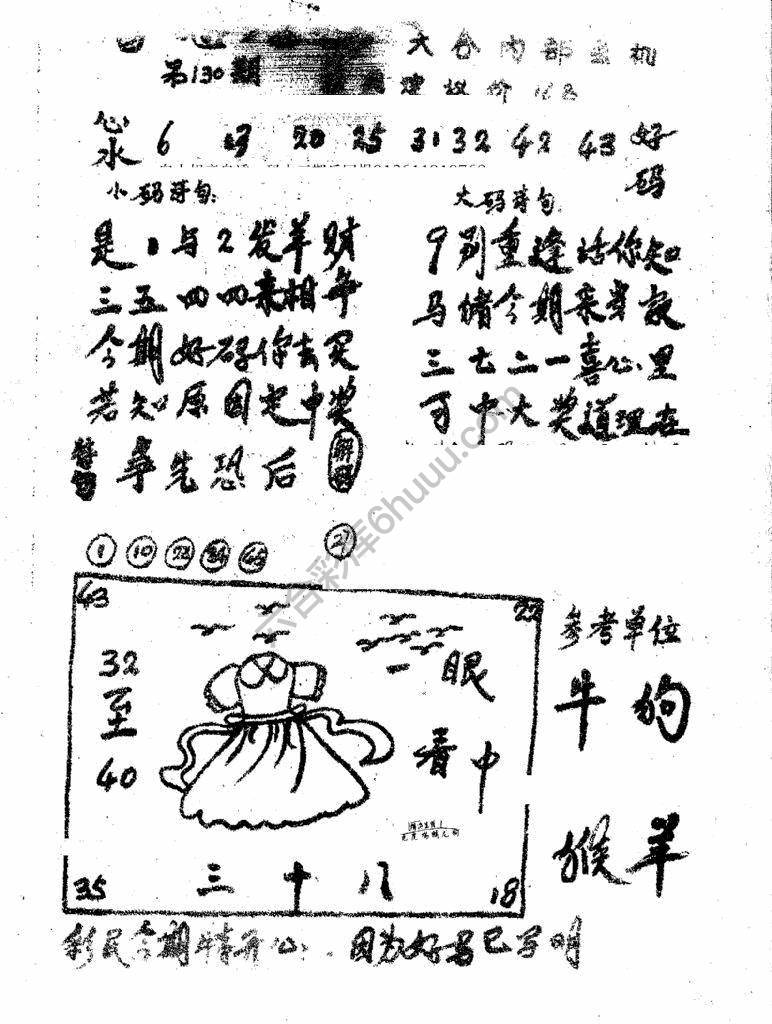 第130期
六合内部玄机
建议价
心水 6 13 20 25 31 32 42 43 好码
小码诗句:
是1与2发羊财
三五四四来相争
今期好码你去买
若知原因定中奖
大码诗句
9别重逢话你知
马猪今期来寻
三七二一喜心里
可中大奖道理在
特 争先恐后 解
1 10 22 34 45 27
43 22
32至40
眼看中
35 三十八 18
参考单位
牛 狗
猴 羊
彩民今期特开心、因为好马已写明
六合彩库6huuu.com